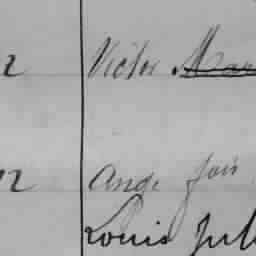 2 Victor
12 Ange fois
Louis Jul